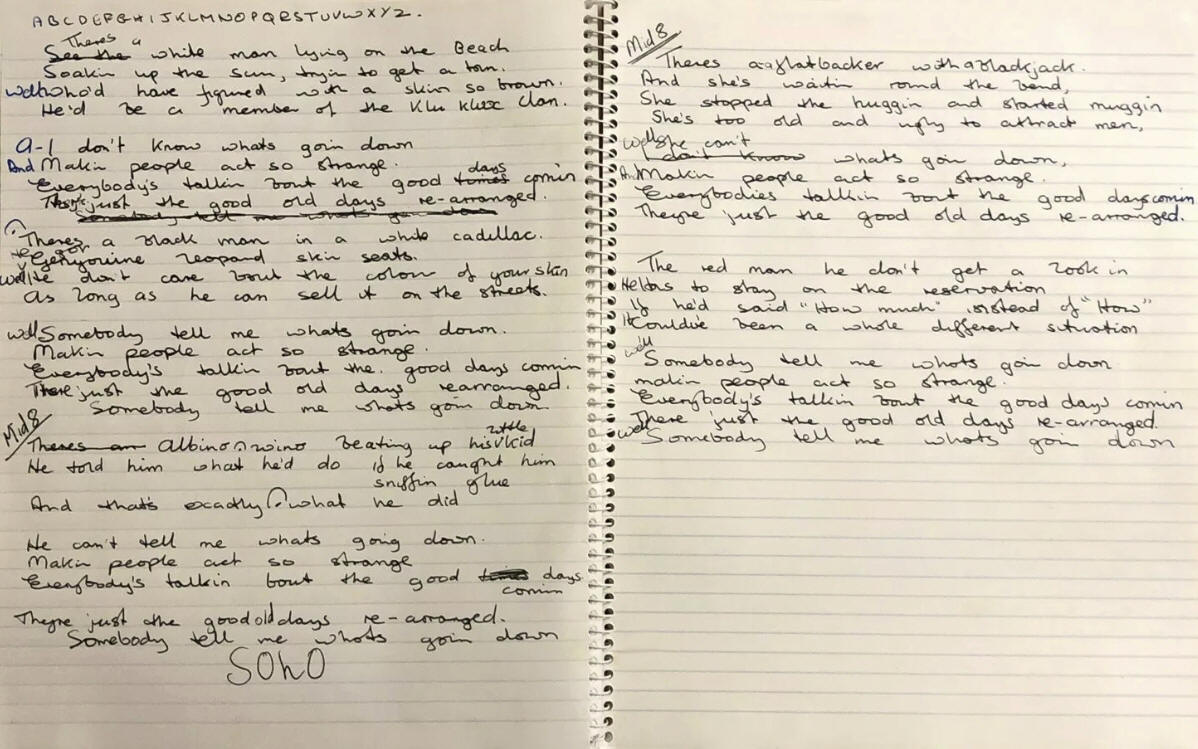 ABCDEFGHIJKLMNOPQRSTUVWXYZ.
Theres a
See the white man lying on the Beach
Soakin up the sun, tryin to get a tan.
well who'd have figured with a skin so brown.
He'd be a member of the Klu Klux Clan.
A-I don't know whats goin down
And Makin people act so strange.
days
Everybody's talkin bout the good times comin
Theyre just the good old days re-arranged.
Somebody tell me what's goin down
Theres a black man in a white cadillac.
he got
Genyouine leopard skin seats.
well He don't care bout the colour of your skin
As long as he can sell it on the streets.
well Somebody tell me whats goin down.
Makin people act so strange.
Everybody's talkin bout the good days comin
There just the good old days rearranged.
Somebody tell me whats goin down
Mid 8
little
Theres an Albino wino beating up his kid
He told him what he'd do if he caught him
sniffin glue
And thats exactly what he did
He can't tell me whats going down.
Makin people act so strange
Everybody's talkin bout the good times days
comin
Theyre just the good old days re-arranged.
Somebody tell me whats goin down
SOhO
Mid 8
Theres a flatbacker with a blackjack.
And she's waitin round the bend,
She stopped the huggin and started muggin
She's too old and ugly to attract men,
well she can't
I don't know whats goin down,
Makin people act so strange.
Everybodies talkin bout the good days comin
Theyre just the good old days re-arranged.
The red man he don't get a look in
He has to stay on the reservation
If he'd said "How much" instead of "How"
It Could've been a whole different situation
well
Somebody tell me whats goin down
makin people act so strange.
Everybody's talkin bout the good days comin
There just the good old days re-arranged.
well Somebody tell me whats goin down